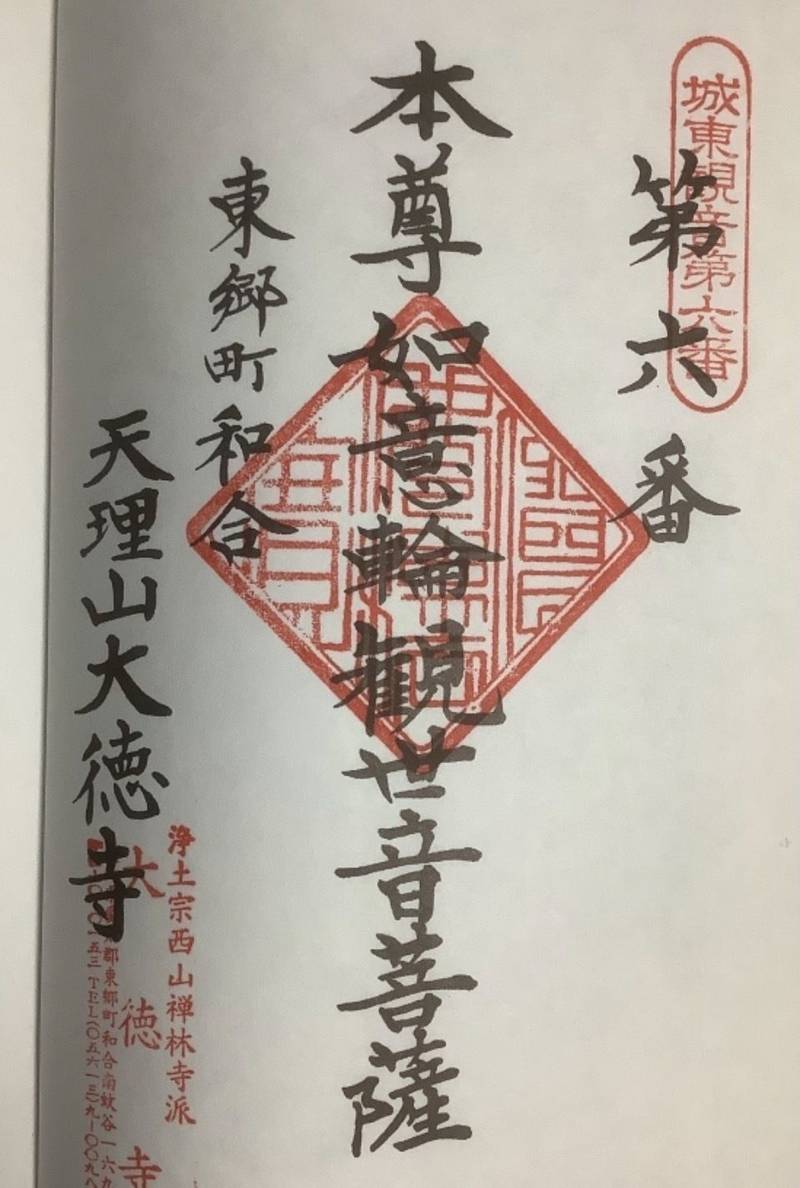 城東観音第六番
第六番
本尊如意輪観世音菩薩
東郷町和合
天理山大徳寺
浄土宗西山禅林寺派
大徳寺
郡東郷町和合南蚊谷一六九
一五三TEL(〇五六一三)九-〇〇九八